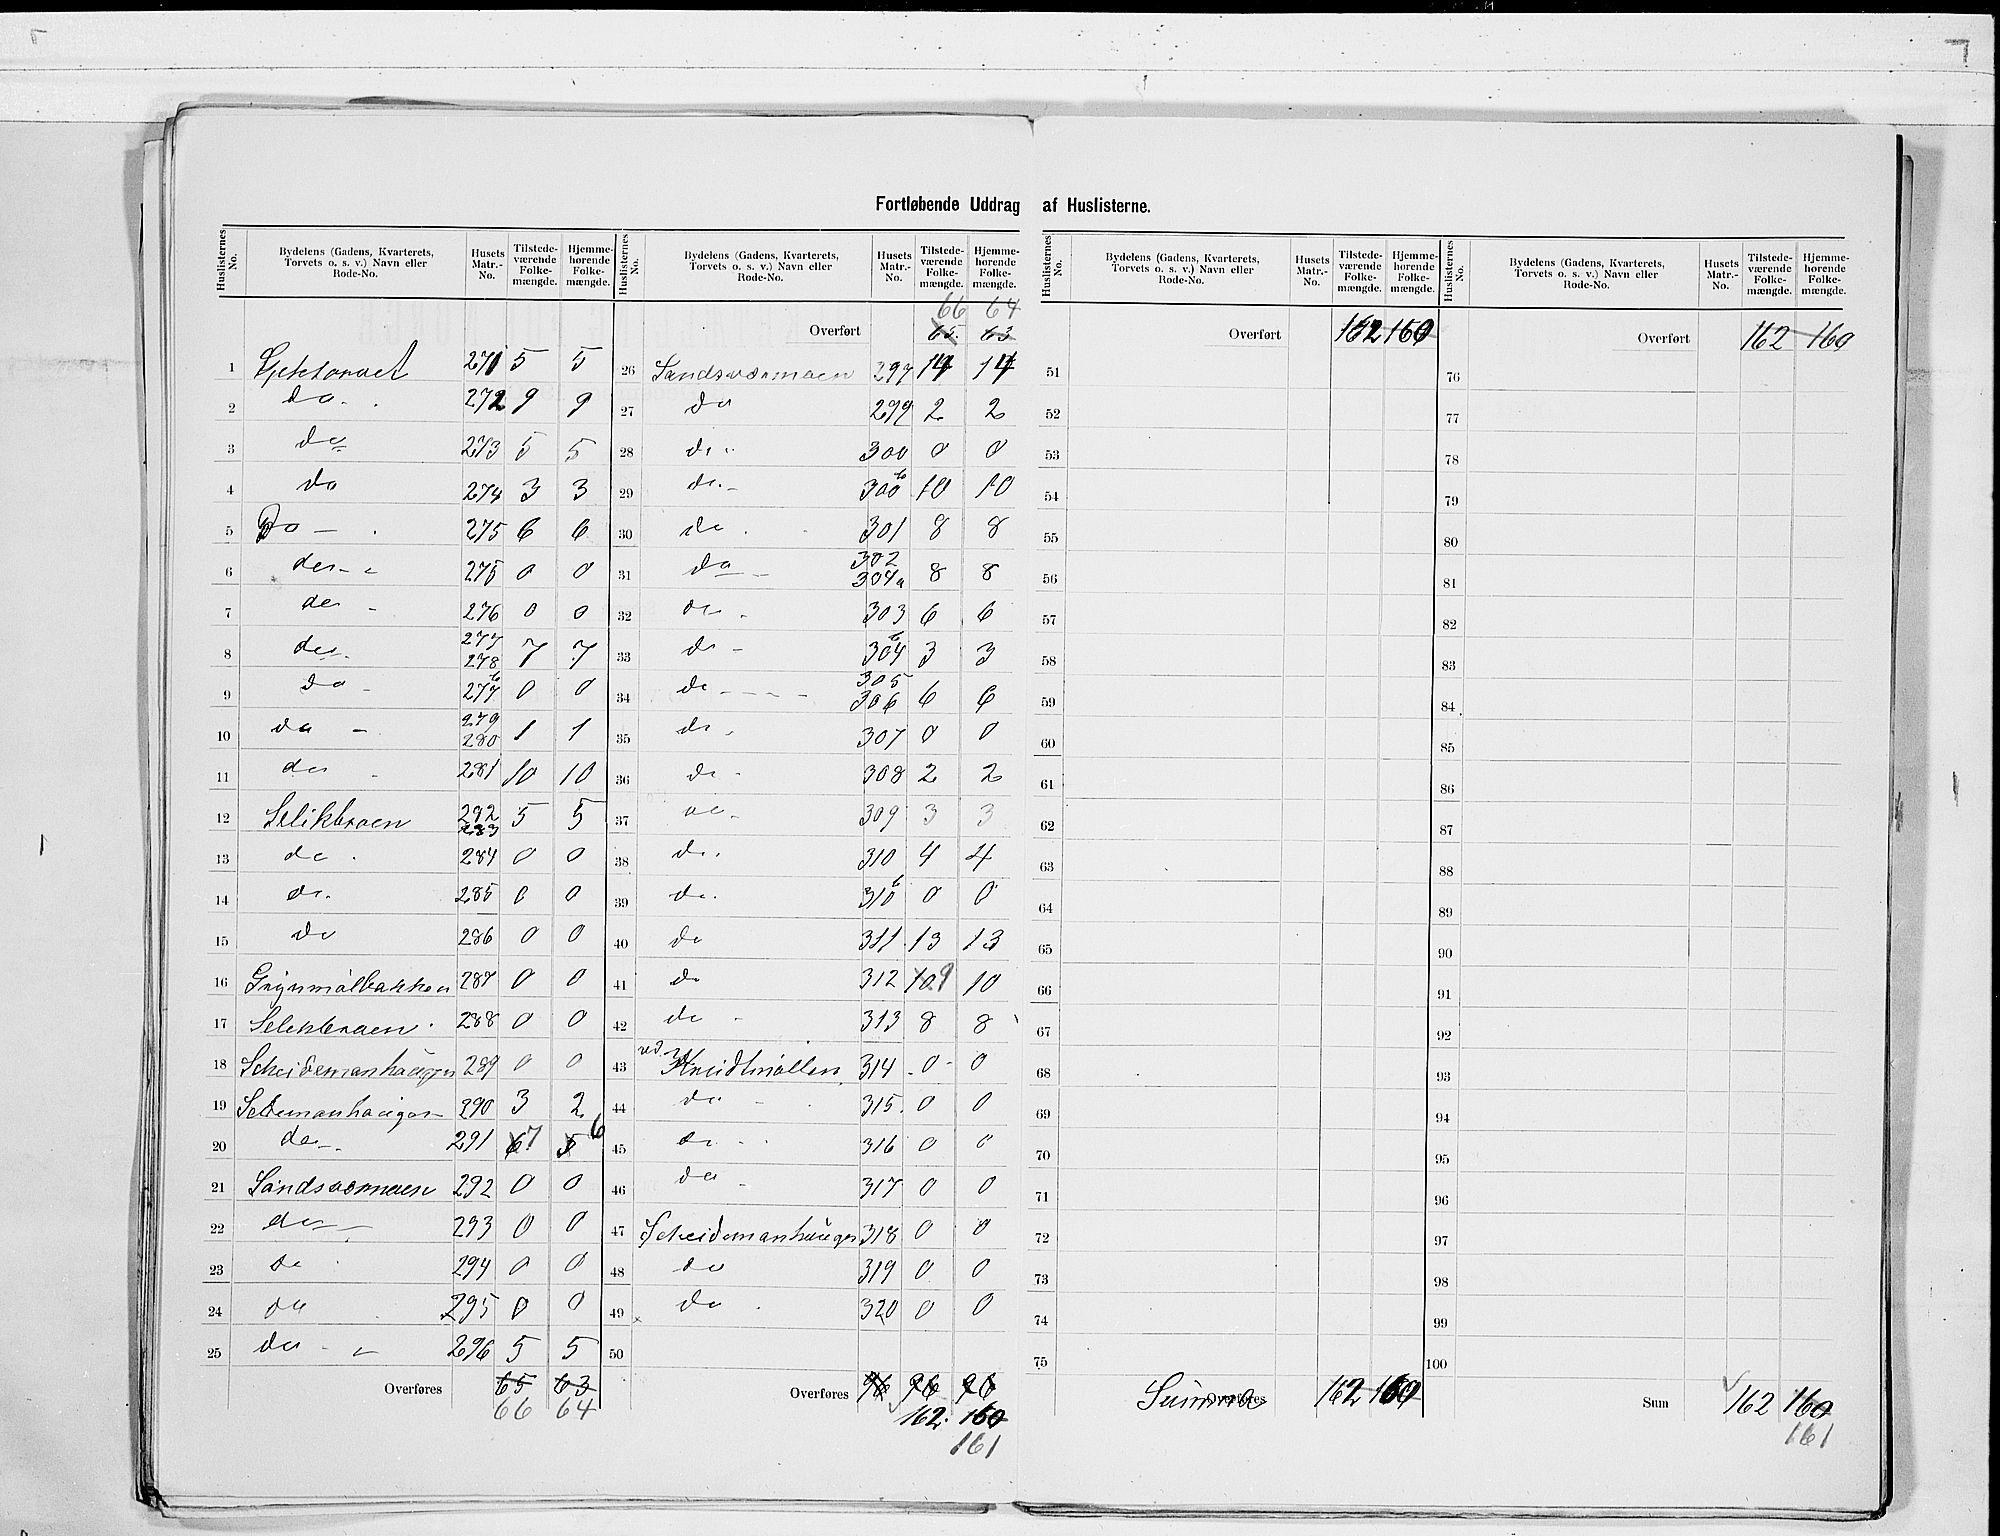 Fortløbende Uddrag af Huslisterne.
Huslisternes No. Bydelens (Gadens, Kvarterets, Torvets o. s. v.) Navn eller Rode-No. Husets Matr.-No. Tilstedeværende Folkemængde. Hjemmehørende Folkemængde.
1 271 5 5
2 do. 272 9 9
3 do 273 5 5
4 do 274 3 3
5 Do — 275 6 6
6 do - 275 0 0
7 do - 276 0 0
8 do - 277 278 7 7
9 do - 277b 0 0
10 do - 279 280 1 1
11 do 281 10 10
12 Selikbraen 292 283 5 5
13 do. 284 0 0
14 do. 285 0 0
15 do 286 0 0
16 287 0 0
17 Selikbraen 288 0 0
18 Scheidemanhaugen 289 0 0
19 290 3 2
20 do - 291 6 7 5 6
21 Sandsværmoen 292 0 0
22 do - 293 0 0
23 do 294 0 0
24 do 295 0 0
25 do - 296 5 5
Overføres 65 63
66 64
Huslisternes No. Bydelens (Gadens, Kvarterets, Torvets o. s. v.) Navn eller Rode-No. Husets Matr.-No. Tilstedeværende Folkemængde. Hjemmehørende Folkemængde.
66 64
Overført 65 63
26 Sandsværmoen 297 14 14
27 do 299 2 2
28 do 300 0 0
29 do - 300b 10 10
30 do 301 8 8
31 do - 302 304a 8 8
32 do - 303 6 6
33 do - 304b 3 3
34 do - - - - 305 306 6 6
35 do 307 0 0
36 do - 308 2 2
37 do - 309 3 3
38 do. 310 4 4
39 do. 310b 0 0
40 do 311 13 13
41 do 312 10 9 10
42 do - 313 8 8
43 ved 314 0 0
44 do - 315 0 0
45 do - 316 0 0
46 do - 317 0 0
47 Scheidemanhaugen 318 0 0
48 do 319 0 0
49 do 320 0 0
50
Overføres 96 96 96
162. 160
161
Huslisternes No. Bydelens (Gadens, Kvarterets, Torvets o. s. v.) Navn eller Rode-No. Husets Matr.-No. Tilstedeværende Folkemængde. Hjemmehørende Folkemængde.
Overført 162 160
51
52
53
54
55
56
57
58
59
60
61
62
63
64
65
66
67
68
69
70
71
72
73
74
75
Summa Overføres 162 160
Huslisternes No. Bydelens (Gadens, Kvarterets, Torvets o. s. v.) Navn eller Rode-No. Husets Matr.-No. Tilstedeværende Folkemængde. Hjemmehørende Folkemængde.
Overført 162 160
76
77
78
79
80
81
82
83
84
85
86
87
88
89
90
91
92
93
94
95
96
97
98
99
100
Sum 162 160
161